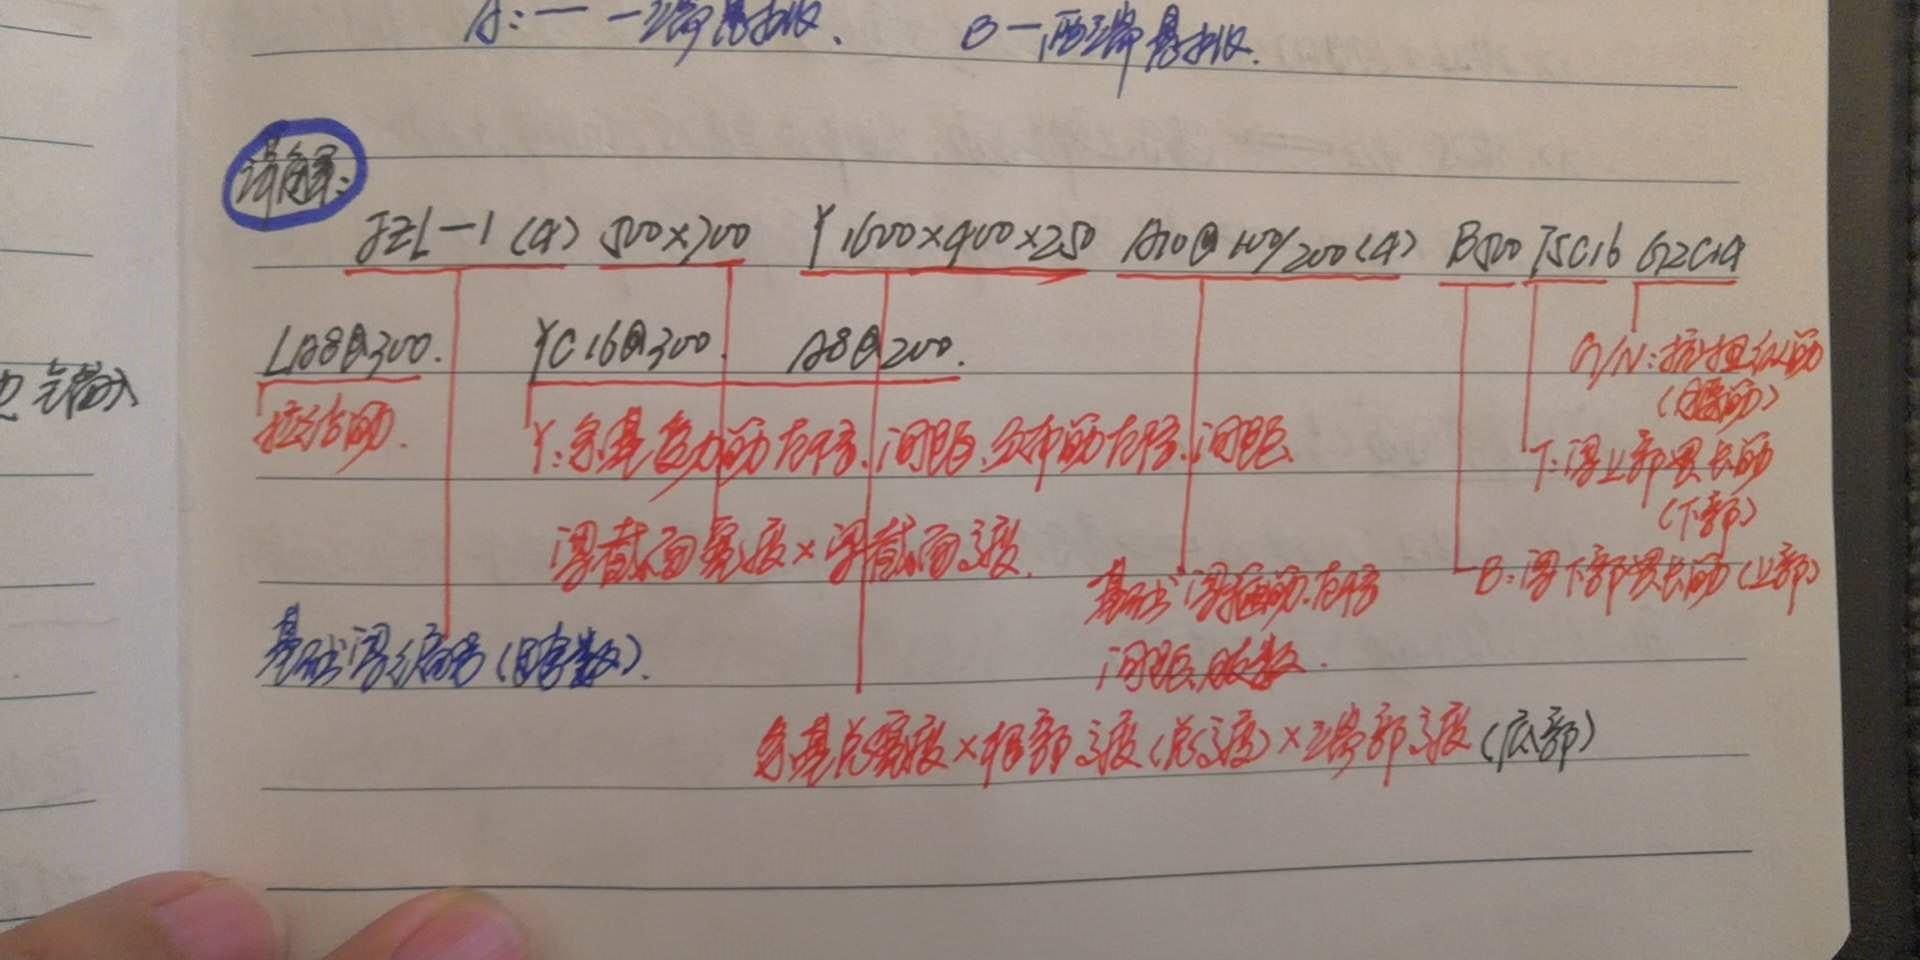 A:一 一端悬挑.  B一两端悬挑.
详解:
JZL-1(4) 500×700 Y1600×400×250 A10@100/200(4) B500 T5C16 G2C14
LA8@300. YC16@300. A8@200.
G/N:抗扭纵筋
(腰筋)
拉结筋. Y:条基受力筋直径、间距、分布筋直径、间距.
T:梁上部贯长筋
(下部)
梁截面宽度×梁截面高度.
B:梁下部贯长筋(上部)
基础梁箍筋.直径
基础梁编号(跨数).
间距、肢数.
条基总宽度×根部高度(总高度)×端部高度(底部)